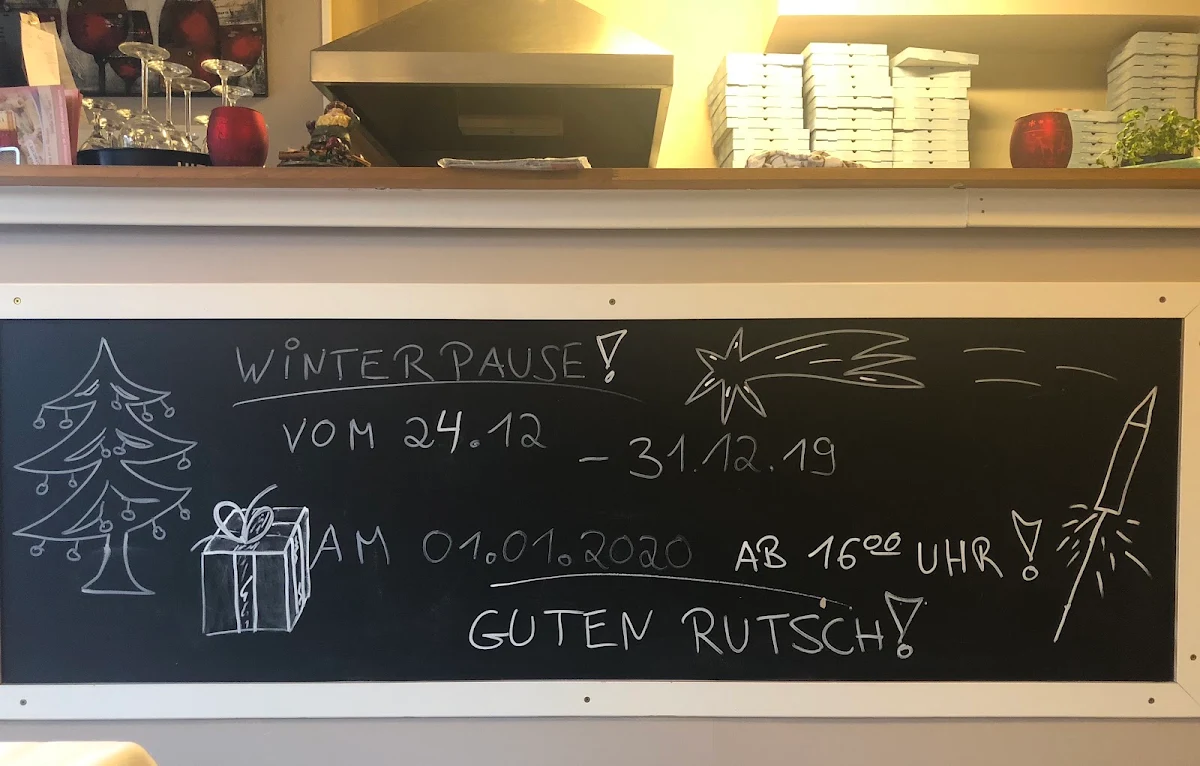 WINTERPAUSE!
VOM 24.12
- 31.12.19
AM 01.01.2020 AB 16⁰⁰ UHR!
GUTEN RUTSCH!